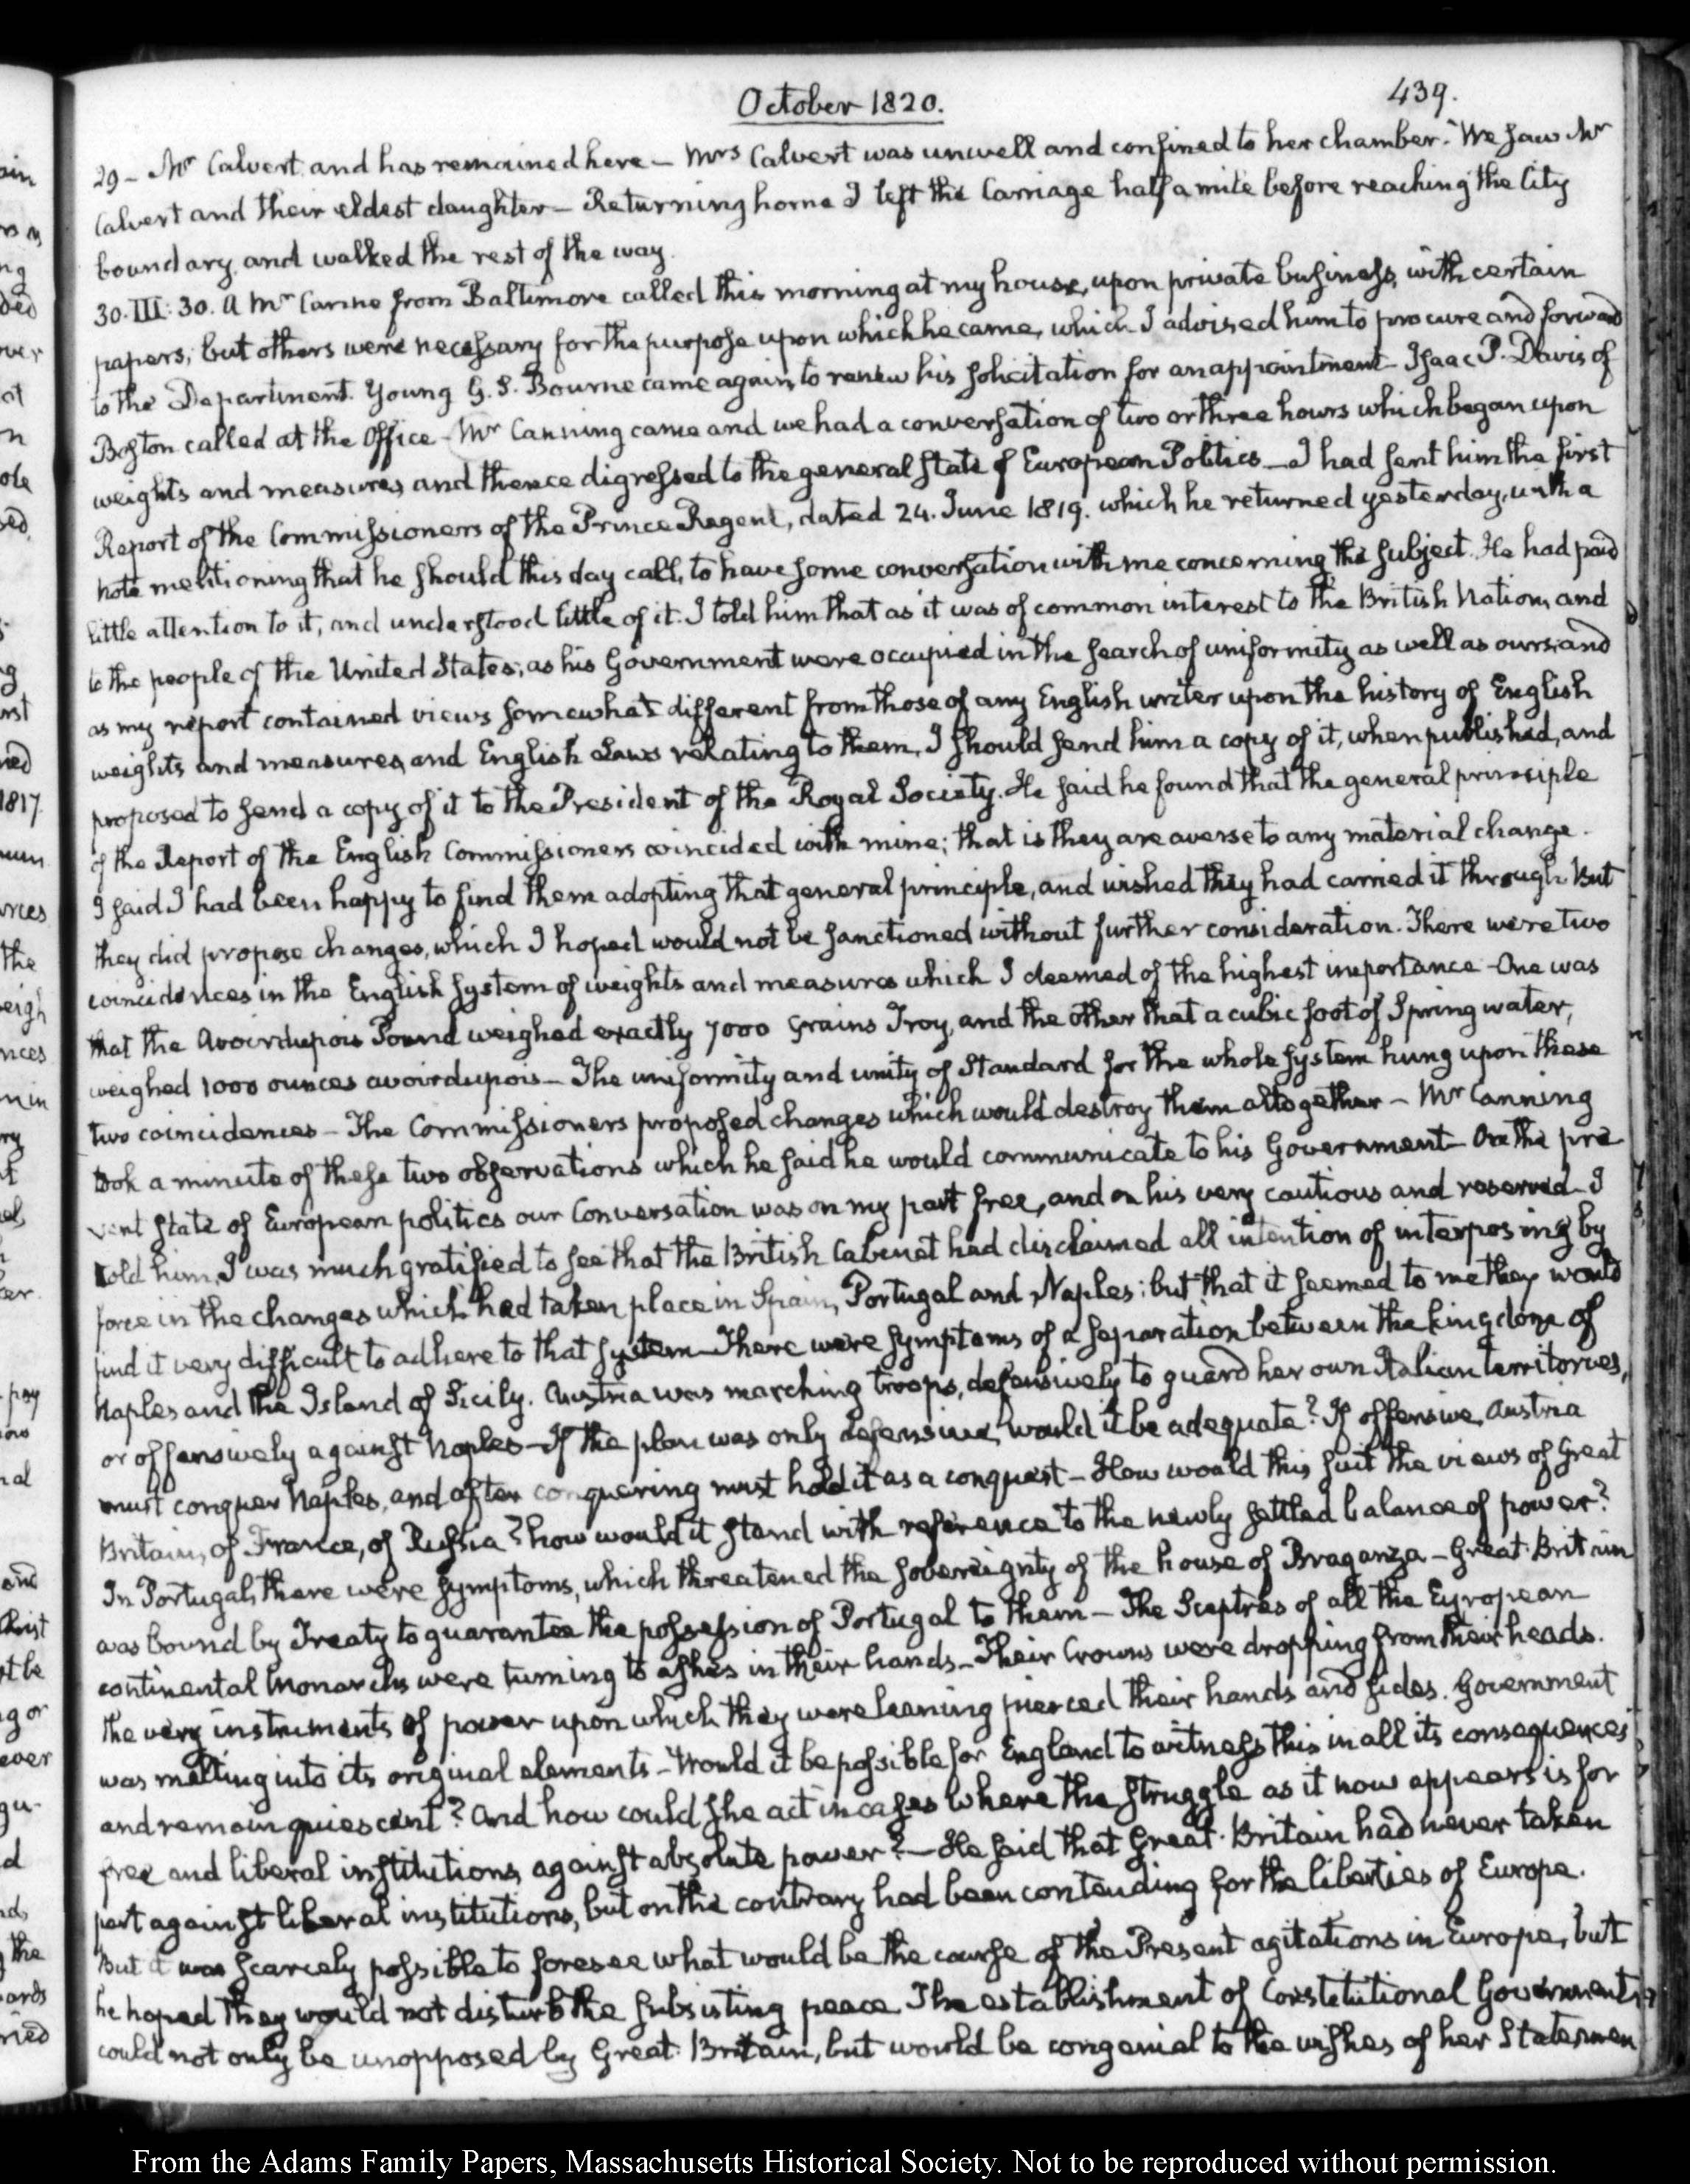 October 1820.
439.
29 – Mr Calvert and has remained here – Mrs Calvert was unwell and confined to her chamber. We saw Mr
Calvert and their eldest daughter – Returning home I left the Carriage half a mile before reaching the City
boundary, and walked the rest of the way.
30. III: 30. A Mr Carine from Baltimore called this morning at my house, upon private business, with certain
papers; but others were necessary for the purpose upon which he came, which I advised him to procure and forward
to the Department. Young G. S. Bourne came again to renew his solicitation for an appointment – Isaac P. Davis of
Boston called at the Office – Mr Canning came and we had a conversation of two or three hours which began upon
weights and measures, and thence digressed to the general State of European Politics – I had sent him the first
Report of the Commissioners of the Prince Regent, dated 24. June 1819. which he returned yesterday, with a
note mentioning that he should this day call, to have some conversation with me concerning the subject. He had paid
little attention to it, and understood little of it. I told him that as it was of common interest to the British Nation, and
to the people of the United States; as his Government were occupied in the search of uniformity as well as ours; and
as my report contained views somewhat different from those of any English writer upon the history of English
weights and measures, and English Laws relating to them, I should send him a copy of it, when published, and
proposed to send a copy of it to the President of the Royal Society. He said he found that the general principle
of the Report of the English Commissioners coincided with mine; that is they are averse to any material change.
I said I had been happy to find them adopting that general principle, and wished they had carried it through. But
they did propose changes, which I hoped would not be sanctioned without further consideration. There were two
coincidences in the English system of weights and measures which I deemed of the highest importance – One was
that the Avoirdupois Pound weighed exactly 7000 Grains Troy, and the other that a cubic foot of Spring water,
weighed 1000 ounces avoirdupois – The uniformity and unity of Standard for the whole system hung upon these
two coincidences – The Commissioners proposed changes which would destroy them altogether – Mr Canning
took a minute of these two observations which he said he would communicate to his Government – On the pre
sent State of European politics our Conversation was on my part free, and on his very cautious and reserved – I
told him, I was much gratified to see that the British Cabinet had disclaimed all intention of interposing by
force in the changes which had taken place in Spain, Portugal and Naples; but that it seemed to me they would
find it very difficult to adhere to that system – There were symptoms of a separation between the kingdom of
Naples and the Island of Sicily. Austria was marching troops, defensively to guard her own Italian territories,
or offensively against Naples – If the plan was only defensive, would it be adequate? If offensive, Austria
must conquer Naples, and after conquering must hold it as a conquest – How would this suit the views of Great
Britain, of France, of Russia? how would it stand with reference to the newly settled balance of power?
In Portugal, there were symptoms, which threatened the sovereignty of the house of Braganza – Great Britain
was bound by Treaty to guarantee the possession of Portugal to them – The Sceptres of all the European
continental Monarchs were turning to ashes in their hands – Their Crowns were dropping from their heads.
the very instruments of power upon which they were leaning pierced their hands and sides. Government
was melting into its original elements – Would it be possible for England to witness this in all its consequences
and remain quiescent? And how could she act in cases where the struggle as it now appears is for
free and liberal institutions, against absolute power? – He said that Great Britain had never taken
part against liberal institutions, but on the contrary had been contending for the liberties of Europe.
But it was scarcely possible to foresee what would be the course of the Present agitations in Europe, but
he hoped they would not disturb the subsisting peace. The establishment of Constitutional Governments
could not only be unopposed by Great Britain, but would be congenial to the wishes of her Statesmen
From the Adams Family Papers, Massachusetts Historical Society. Not to be reproduced without permission.